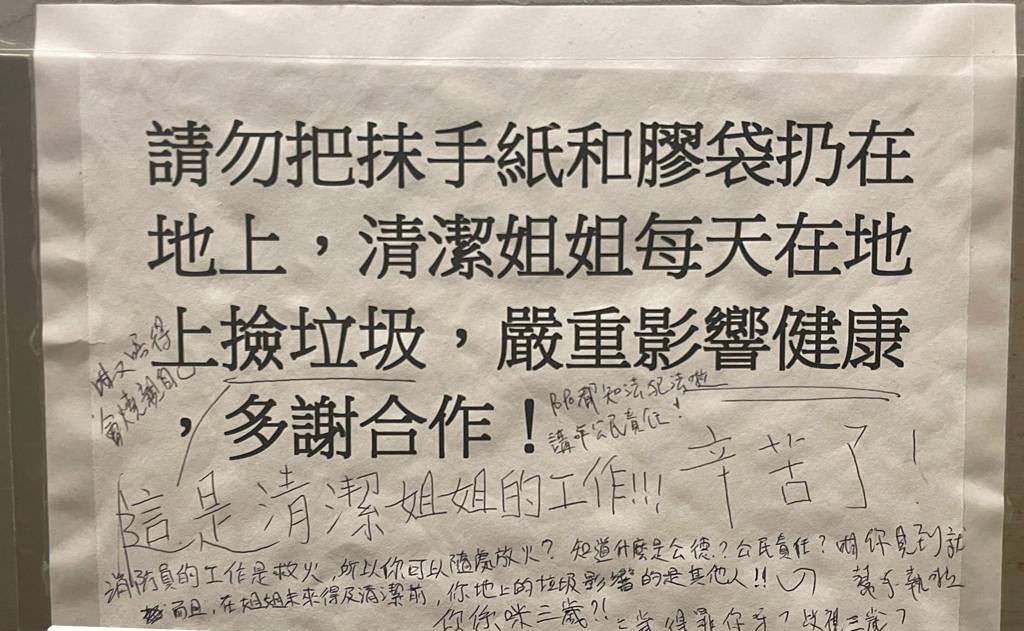 請勿把抹手紙和膠袋扔在
地上，清潔姐姐每天在地
上撿垃圾，嚴重影響健康
，多謝合作！
咁又唔得
會燒親自己
阿都知法犯法啦
講乎公民責任！
這是清潔姐姐的工作!!! 辛苦了！
消防員的工作是救火，所以你可以隨處放火？知道什麼是公德？公民責任？咁你見到就
幫手執啦
而且，在姐姐未來得及清潔前，你地上的垃圾影響的是其他人!!
你係咪三歲?!
三歲得罪你牙？歧視三歲？